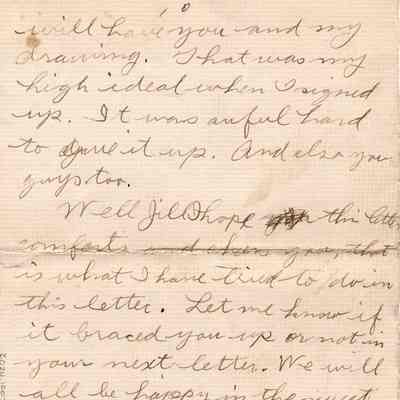 will have you and my
drawing. That was my
high ideal when I signed
up. It was awful hard
to give it up. And also you
guys too.
Well Jill I hope this letter
comforts and cheers you, that
is what I have tried to do in
this letter. Let me know if
it braced you up or not in
your next letter. We will
all be happy in the